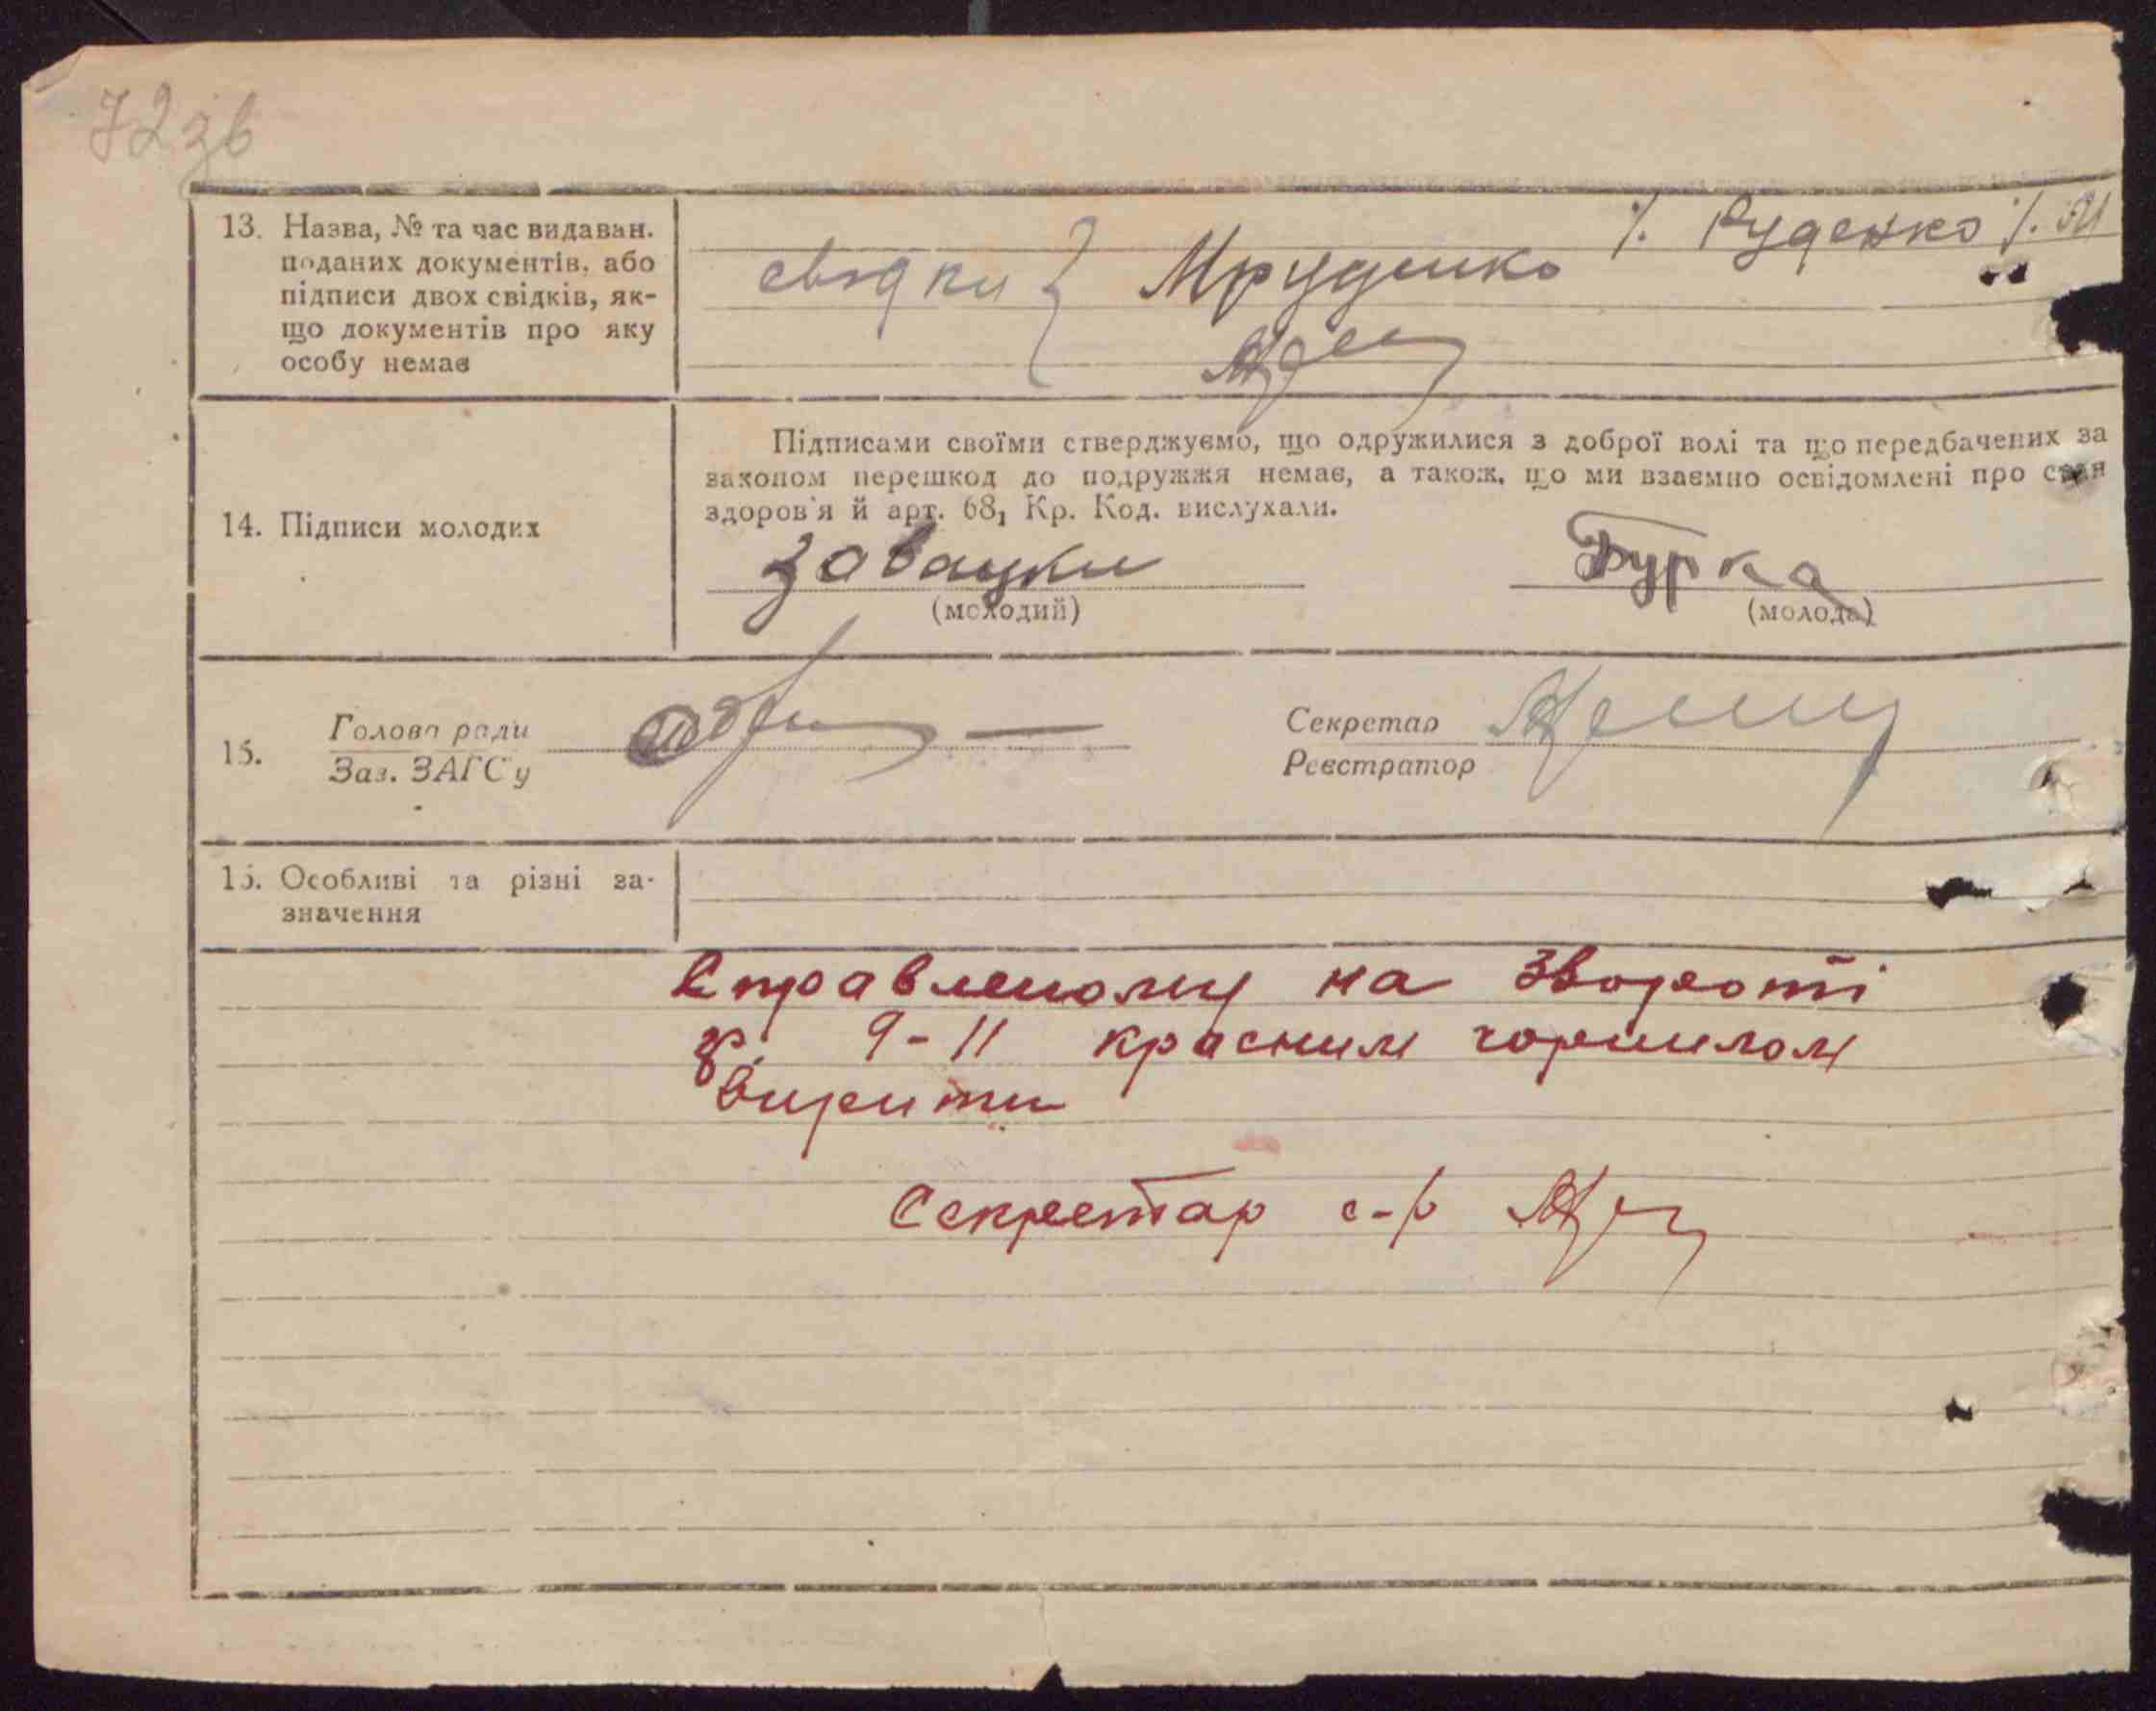 72 зв
13. Назва, № та час видаван.
поданих документів, або
підписи двох свідків, як-
що документів про яку
особу немає
свідки Мруденко /. Руденко /.
14. Підписи молодих
Підписами своїми стверджуємо, що одружилися з доброї волі та що передбачених за
законом перешкод до подружжя немає, а також, що ми взаємно освідомлені про стан
здоров'я й арт. 68₁ Кр. Код. вислухали.
Завацки Бурка
(молодий) (молода)
15. Голова ради Секретар
Зав. ЗАГСу Реєстратор
15. Особливі та різні за-
значення
Справленому на звороті
гр. 9-11 красним чорнилом
вирити
Секретар с-р